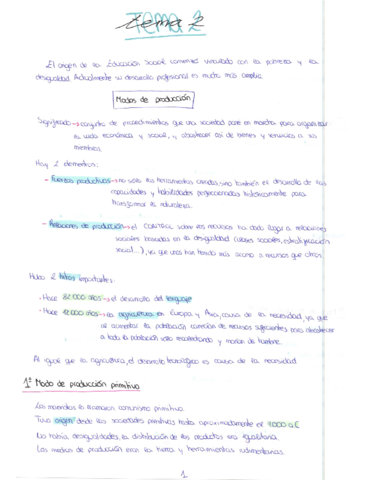 TEMA 2
El origen de la Educación Social comenzó vinculado con la pobreza y la
desigualdad. Actualmente su desarrollo profesional es mucho más amplio.
Modos de producción
Significado → conjunto de procedimientos que una sociedad pone en marcha para organizar
su vida económica y social, y abastecer así de bienes y servicios a sus
miembros.
Hay 2 elementos:
- Fuerzas productivas → no solo las herramientas creadas, sino también el desarrollo de las
capacidades y habilidades proporcionadas históricamente para
transformar la naturaleza.
- Relaciones de producción → el CONTROL sobre los recursos ha dado lugar a relaciones
sociales basadas en la desigualdad (clases sociales, estratificación
social...), ya que unos han tenido más acceso a recursos que otros.
Hubo 2 hitos importantes:
· Hace 82.000 años → el desarrollo del lenguaje
· Hace 12.000 años → la agricultura en Europa y Asia, causa de la necesidad, ya que
al aumentar la población carecían de recursos suficientes para abastecer
a toda la población solo recolectando y morían de hambre.
Al igual que la agricultura, el desarrollo tecnológico es causa de la necesidad.
1º Modo de producción primitivo
Los marxistas lo llamaron comunismo primitivo.
Tuvo origen desde las sociedades primitivas hasta aproximadamente el 4000 a.C
No había desigualdades, la distribución de los productos era igualitaria.
Los medios de producción eran la tierra y herramientas rudimentarias.
1